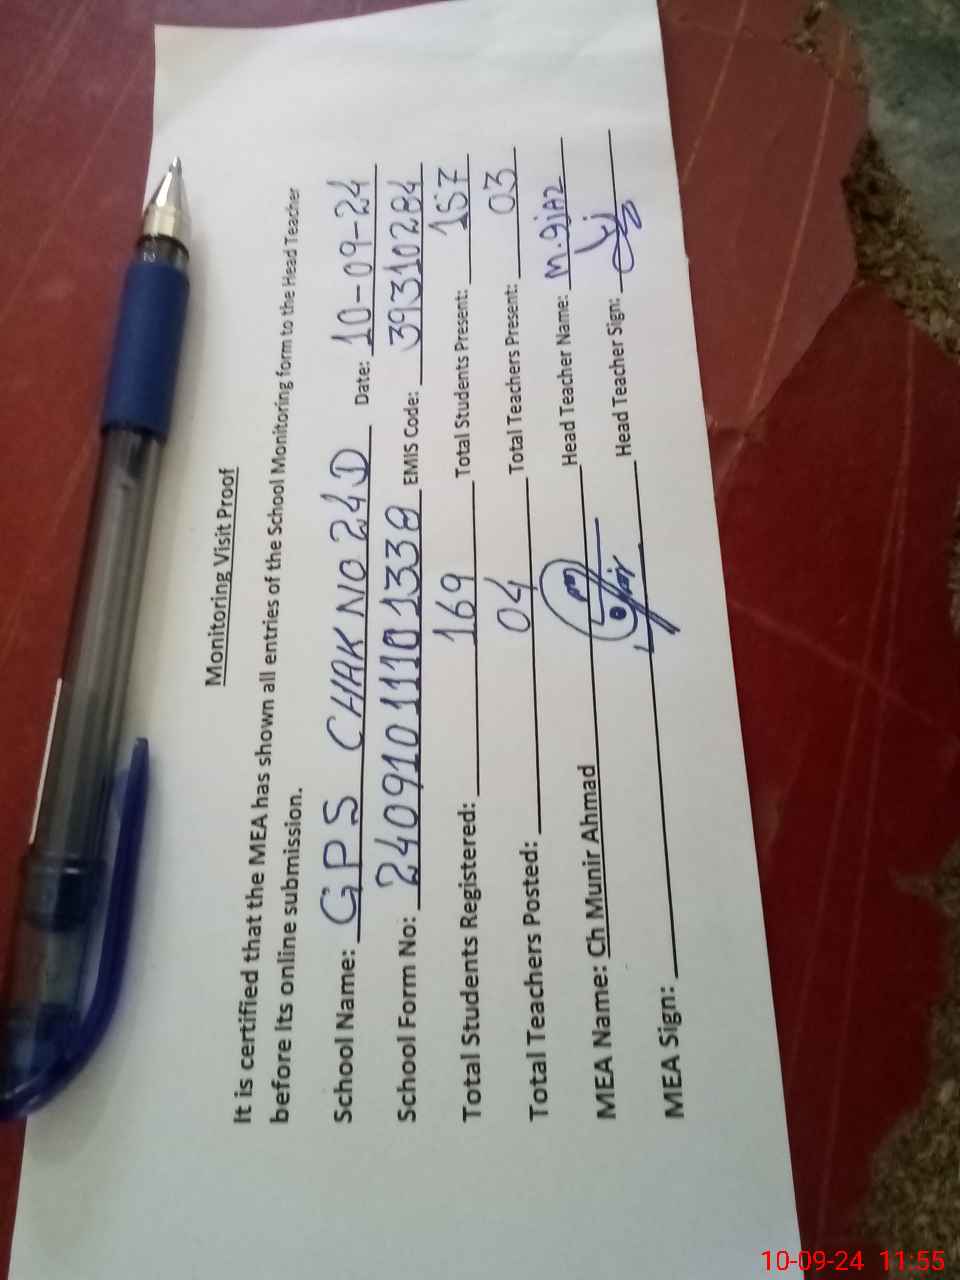 Monitoring Visit Proof
It is certified that the MEA has shown all entries of the School Monitoring form to the Head Teacher
before Its online submission.
School Name: GPS CHAK NO 24D Date: 10-09-24
School Form No: 240910111101338 EMIS Code: 39310284
Total Students Registered: 169 Total Students Present: 157
Total Teachers Posted: 04 Total Teachers Present: 03
MEA Name: Ch Munir Ahmad Head Teacher Name: M.9jAz
MEA Sign: Head Teacher Sign:
10-09-24 11:55